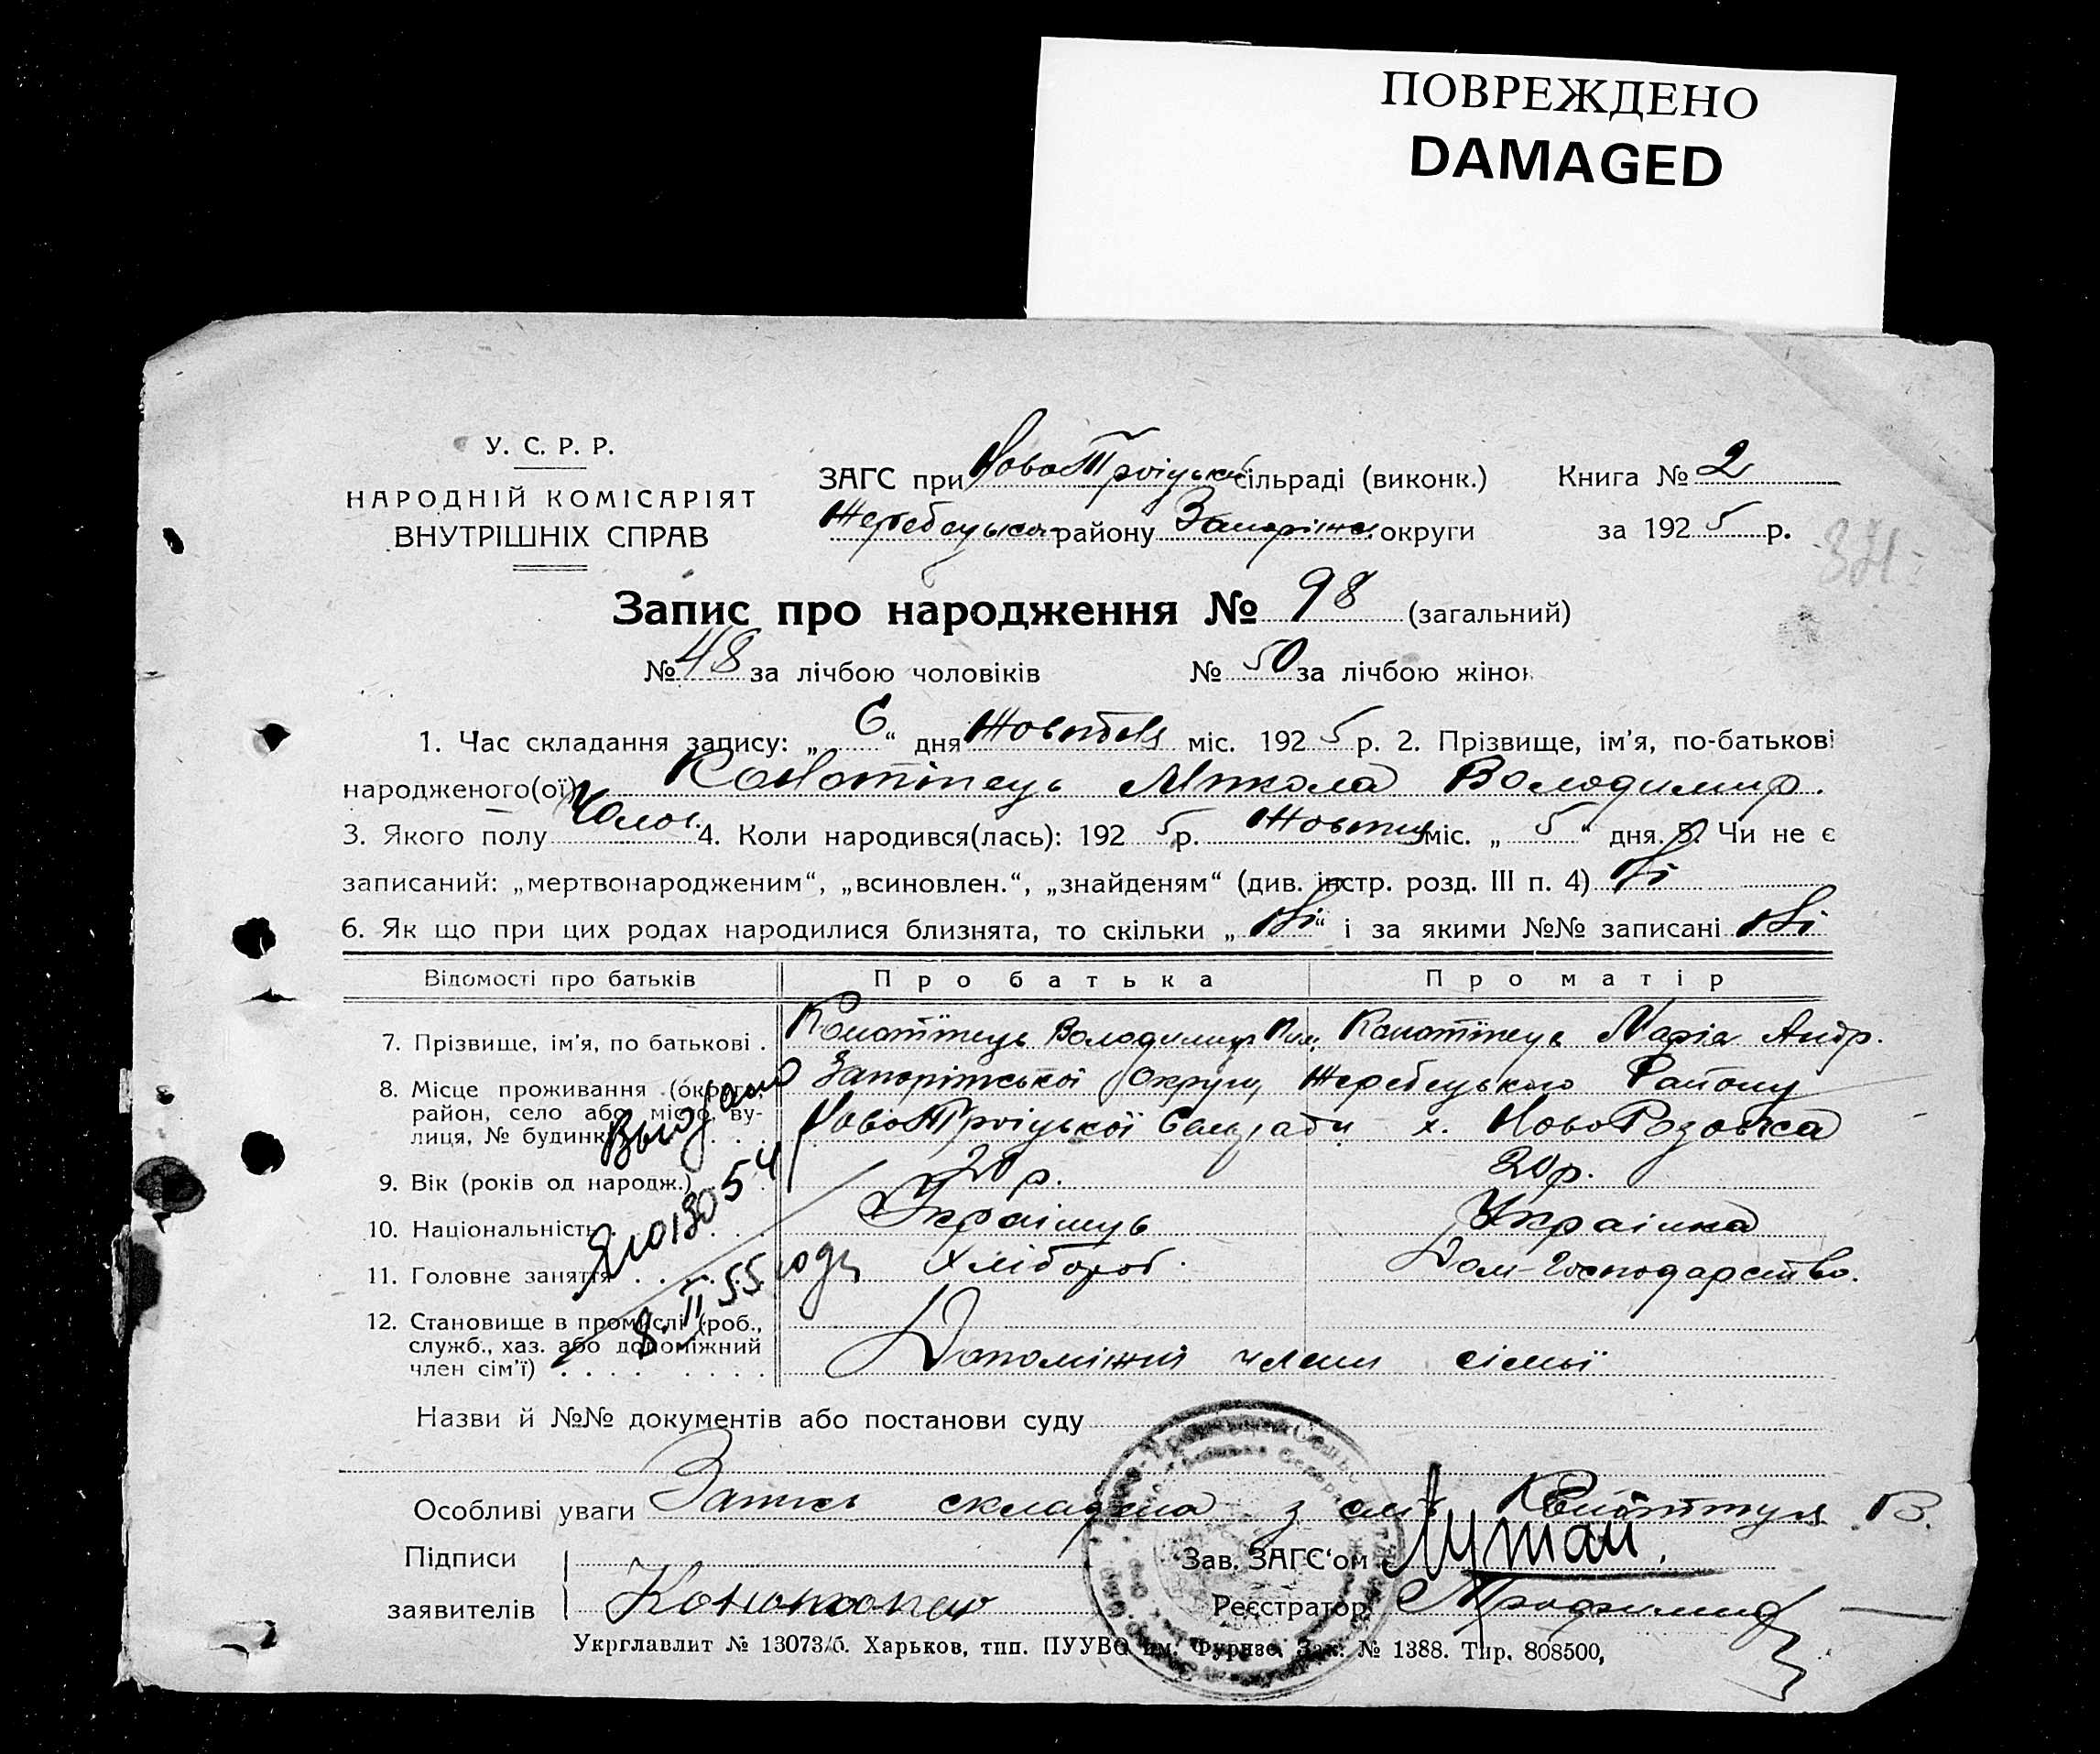 ПОВРЕЖДЕНО
DAMAGED
У. С. Р. Р.
НАРОДНІЙ КОМІСАРІЯТ
ВНУТРІШНІХ СПРАВ
ЗАГС при НовоТроіцькі сільраді (виконк.) Книга № 2
Жеребецьком району Запоріжс. округи за 1925 р.
Запис про народження № 98 (загальний)
№ 48 за лічбою чоловіків № 50 за лічбою жінок
1. Час складання запису: „6“ дня Жовтня міс. 1925 р. 2. Прізвище, ім'я, по-батькові
народженого(ої) Конотіпець Микола Володимир.
3. Якого полу Чолов. 4. Коли народився(лась): 1925 р. Жовтня міс. „5“ дня. 5. Чи не є
записаний: „мертвонародженим“, „всиновлен.“, „знайденям“ (див. інстр. розд. III п. 4) Ні
6. Як що при цих родах народилися близнята, то скільки „Ні“ і за якими №№ записані Ні
Відомості про батьків Про батька Про матір
7. Прізвище, ім'я, по батькові . Конотіпець Володимир Конотіпець Марія Андр.
8. Місце проживання (округа, Запоріжської Округи, Жеребецького Району
район, село або місто, ву- НовоТроіцької Сельради х. НовоРозовка
лиця, № будинк
Выдано
9. Вік (років од народж.) 20 р. 20 р.
ЯЮ 13054
10. Національність Українць Українка
11. Головне заняття Хлібороб. Дом-Господарство.
8.II 55 года
12. Становище в промислі (роб.,
служб., хаз. або допоміжний Допоміжні члени сімьї
член сім'ї)
Назви й №№ документів або постанови суду
Особливі уваги Запись складена з слів В.
Підписи Зав. ЗАГС'ом
заявителів Реєстратор
Укрглавлит № 13073/б. Харьков, тип. ПУУВО им. Фурнзе. Зак. № 1388. Тир. 808500,